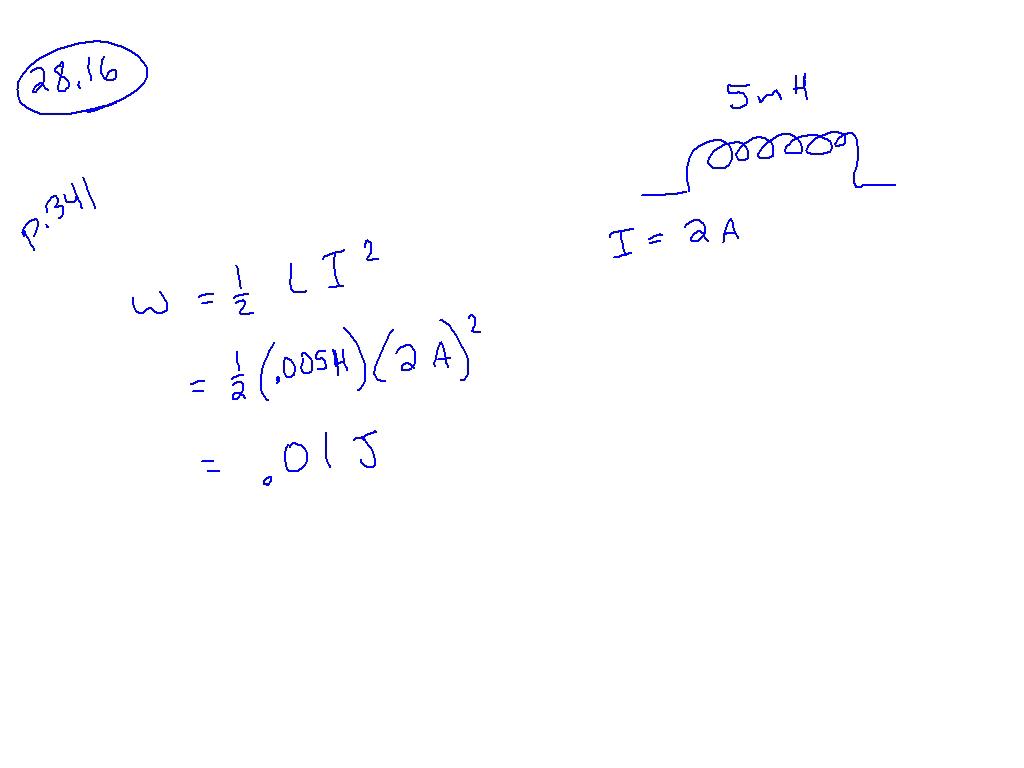 28.16
5mH
p.341
I = 2 A
W = 1/2 L I²
= 1/2 (.005H)(2 A)²
= .01 J